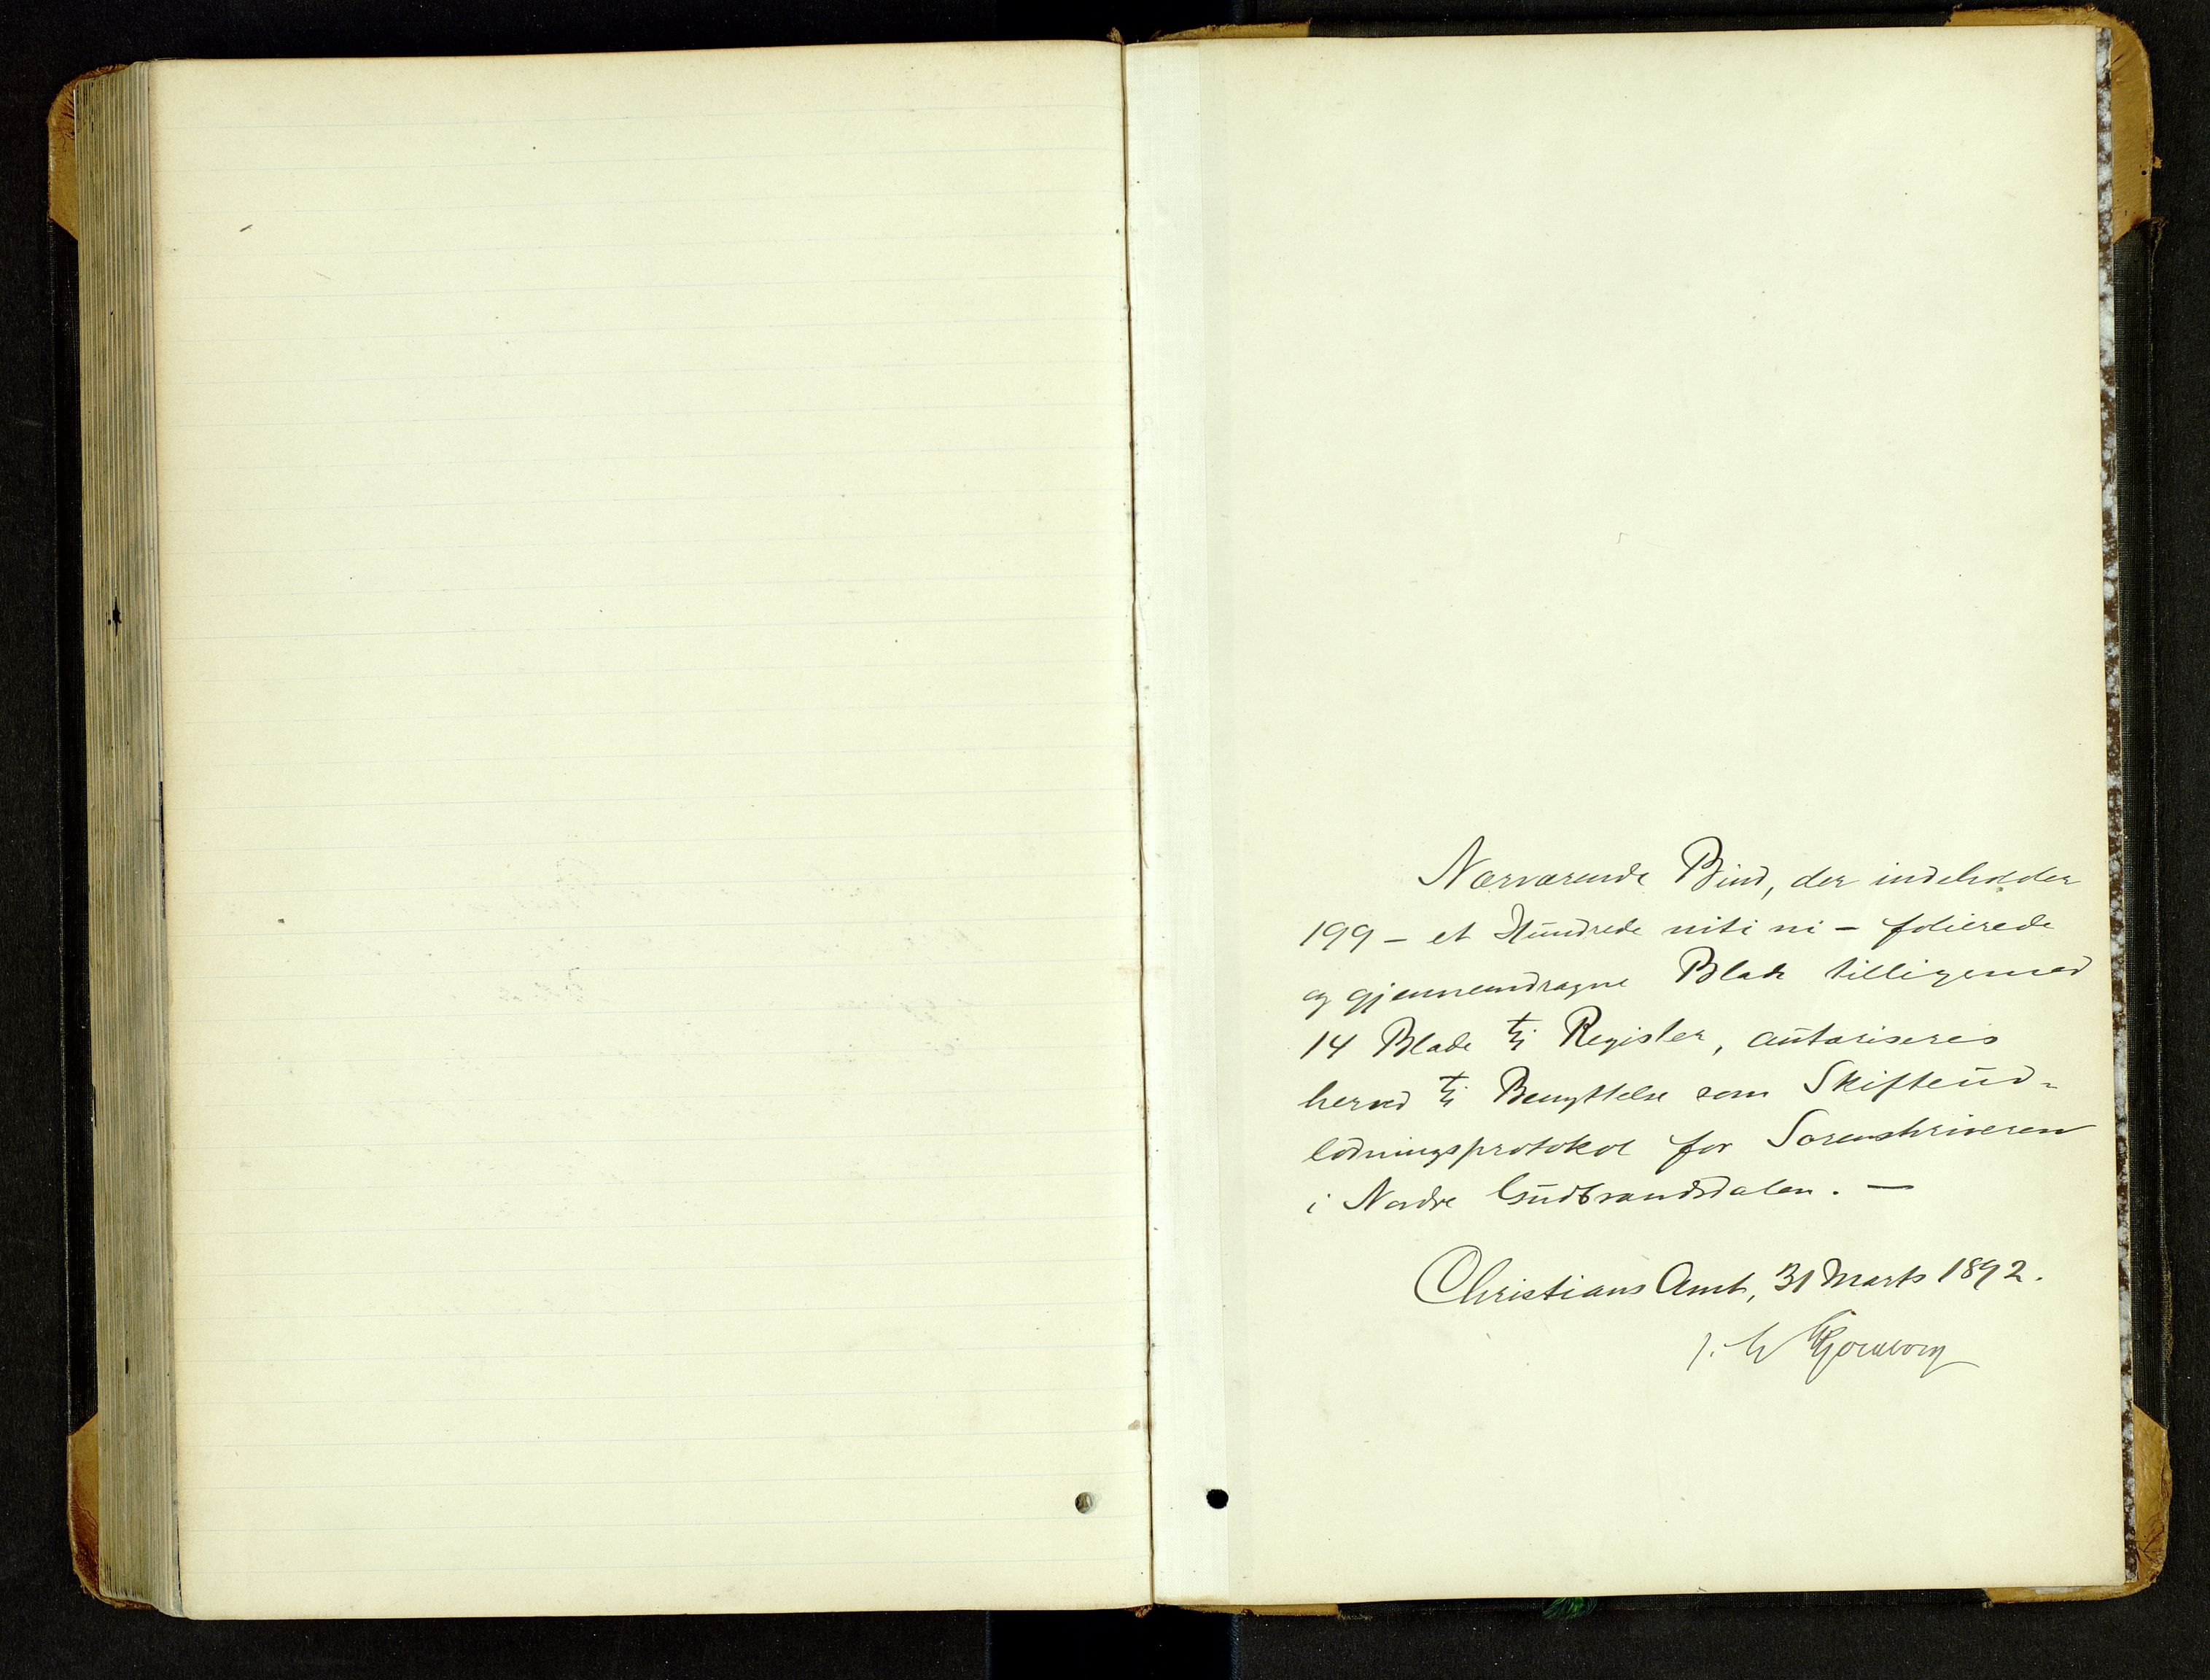 Nærværende Bind, der indeholder
199 – et Hundrede niti ni – folierede
og gjennemdragne Blade tilligemed
14 Blade til Register, autoriseres
herved til Benyttelse som Skifteud-
lodningsprotokol for Sorenskriveren
i Nordre Gudbrandsdalen. —
Christians Amt, 31 Marts 1892.